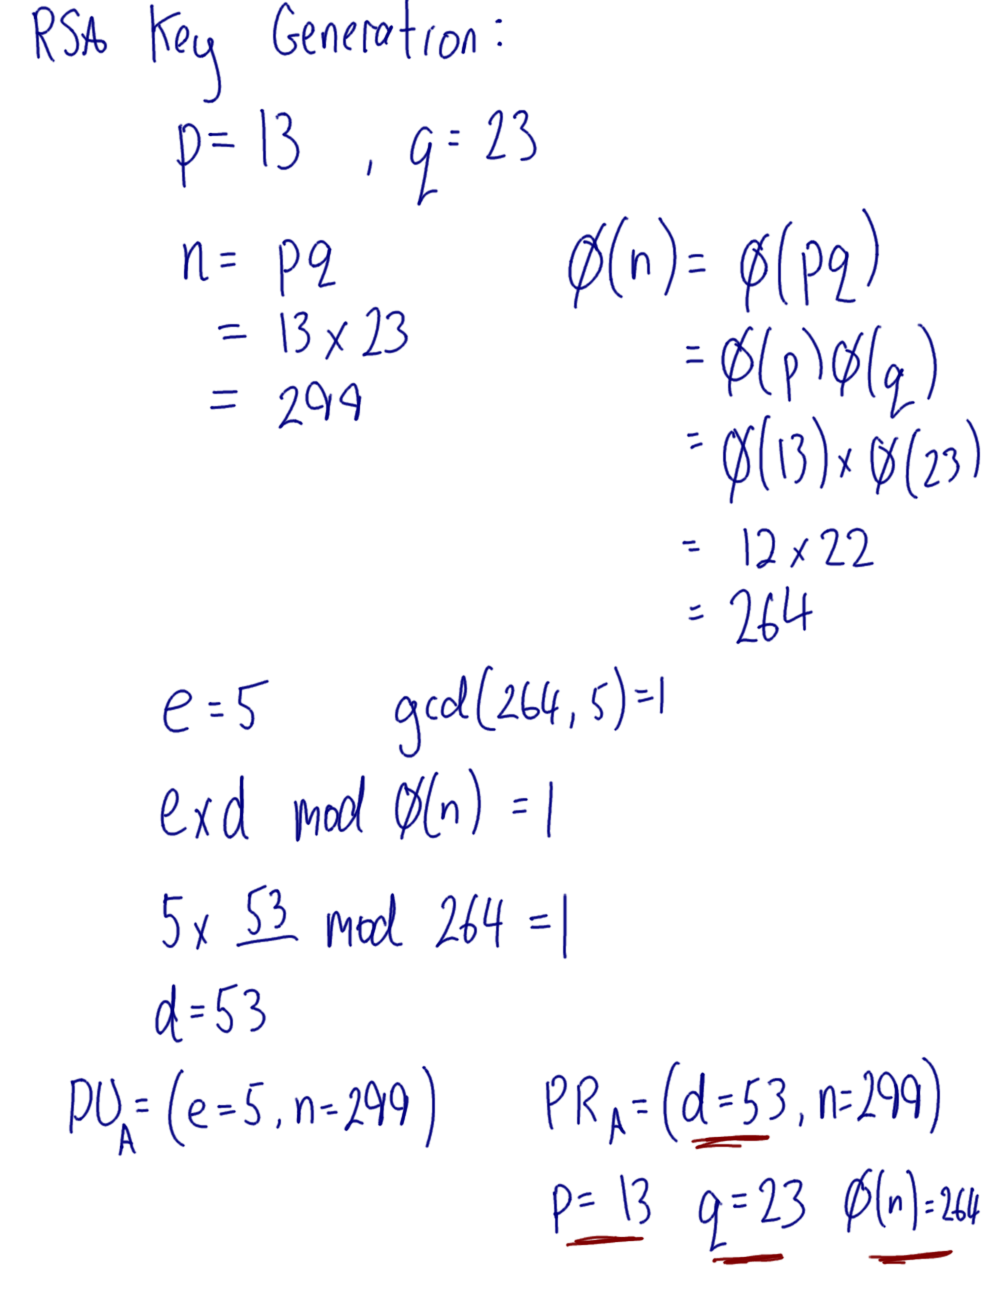 RSA Key Generation:
p= 13 , q= 23
n= pq
= 13 x 23
= 299
ø(n)= ø(pq)
= ø(p)ø(q)
= ø(13) x ø(23)
= 12 x 22
= 264
e=5 gcd(264, 5)=1
exd mod ø(n) = 1
5x 53 mod 264 =1
d=53
PU_A= (e=5, n=299) PR_A= (d=53, n=299)
p= 13 q=23 ø(n)=264